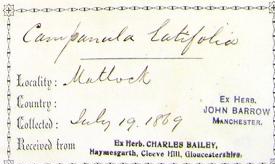 Campanula latifolia
Locality: Matlock
Country:
Collected: July 19. 1869
Ex Herb.
JOHN BARROW
MANCHESTER.
Received from Ex Herb. CHARLES BAILEY,
Haymesgarth, Cleeve Hill, Gloucestershire.